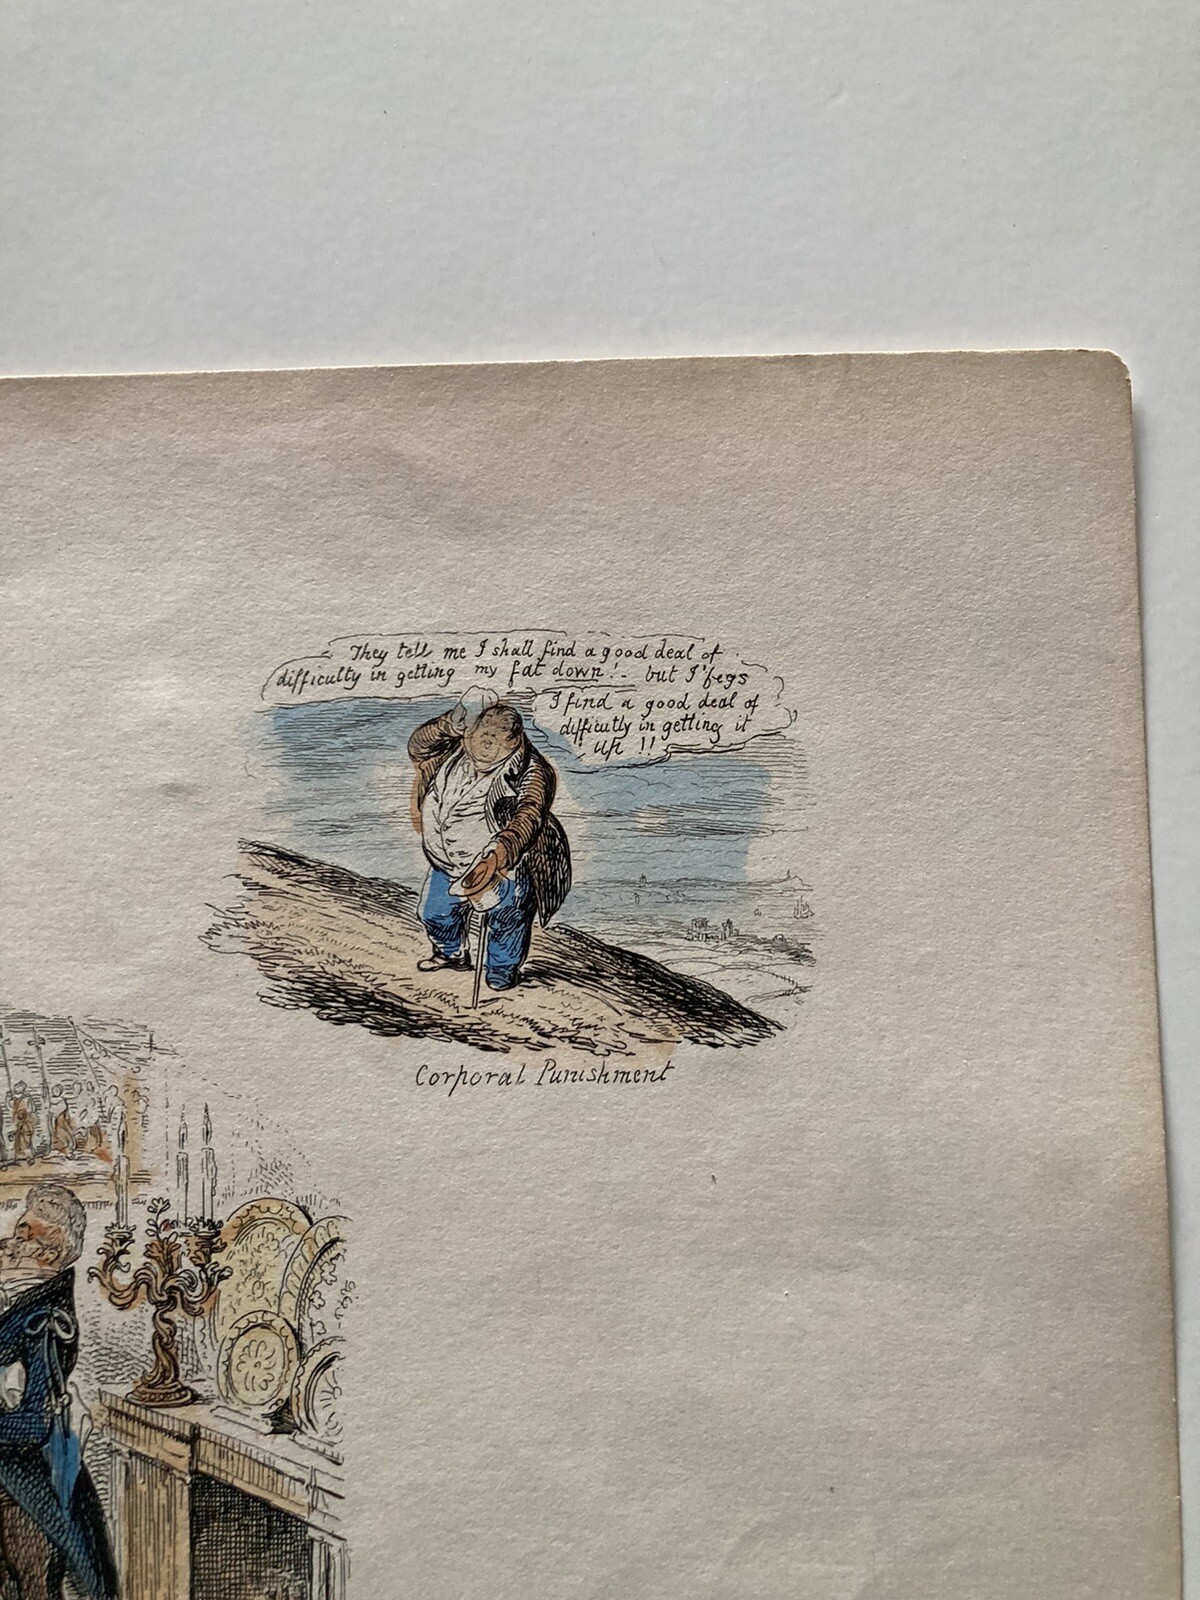 They tell me I shall find a good deal of
difficulty in getting my fat down! - but I'fegs
I find a good deal of
difficutly in getting it
up !!
Corporal Punishment